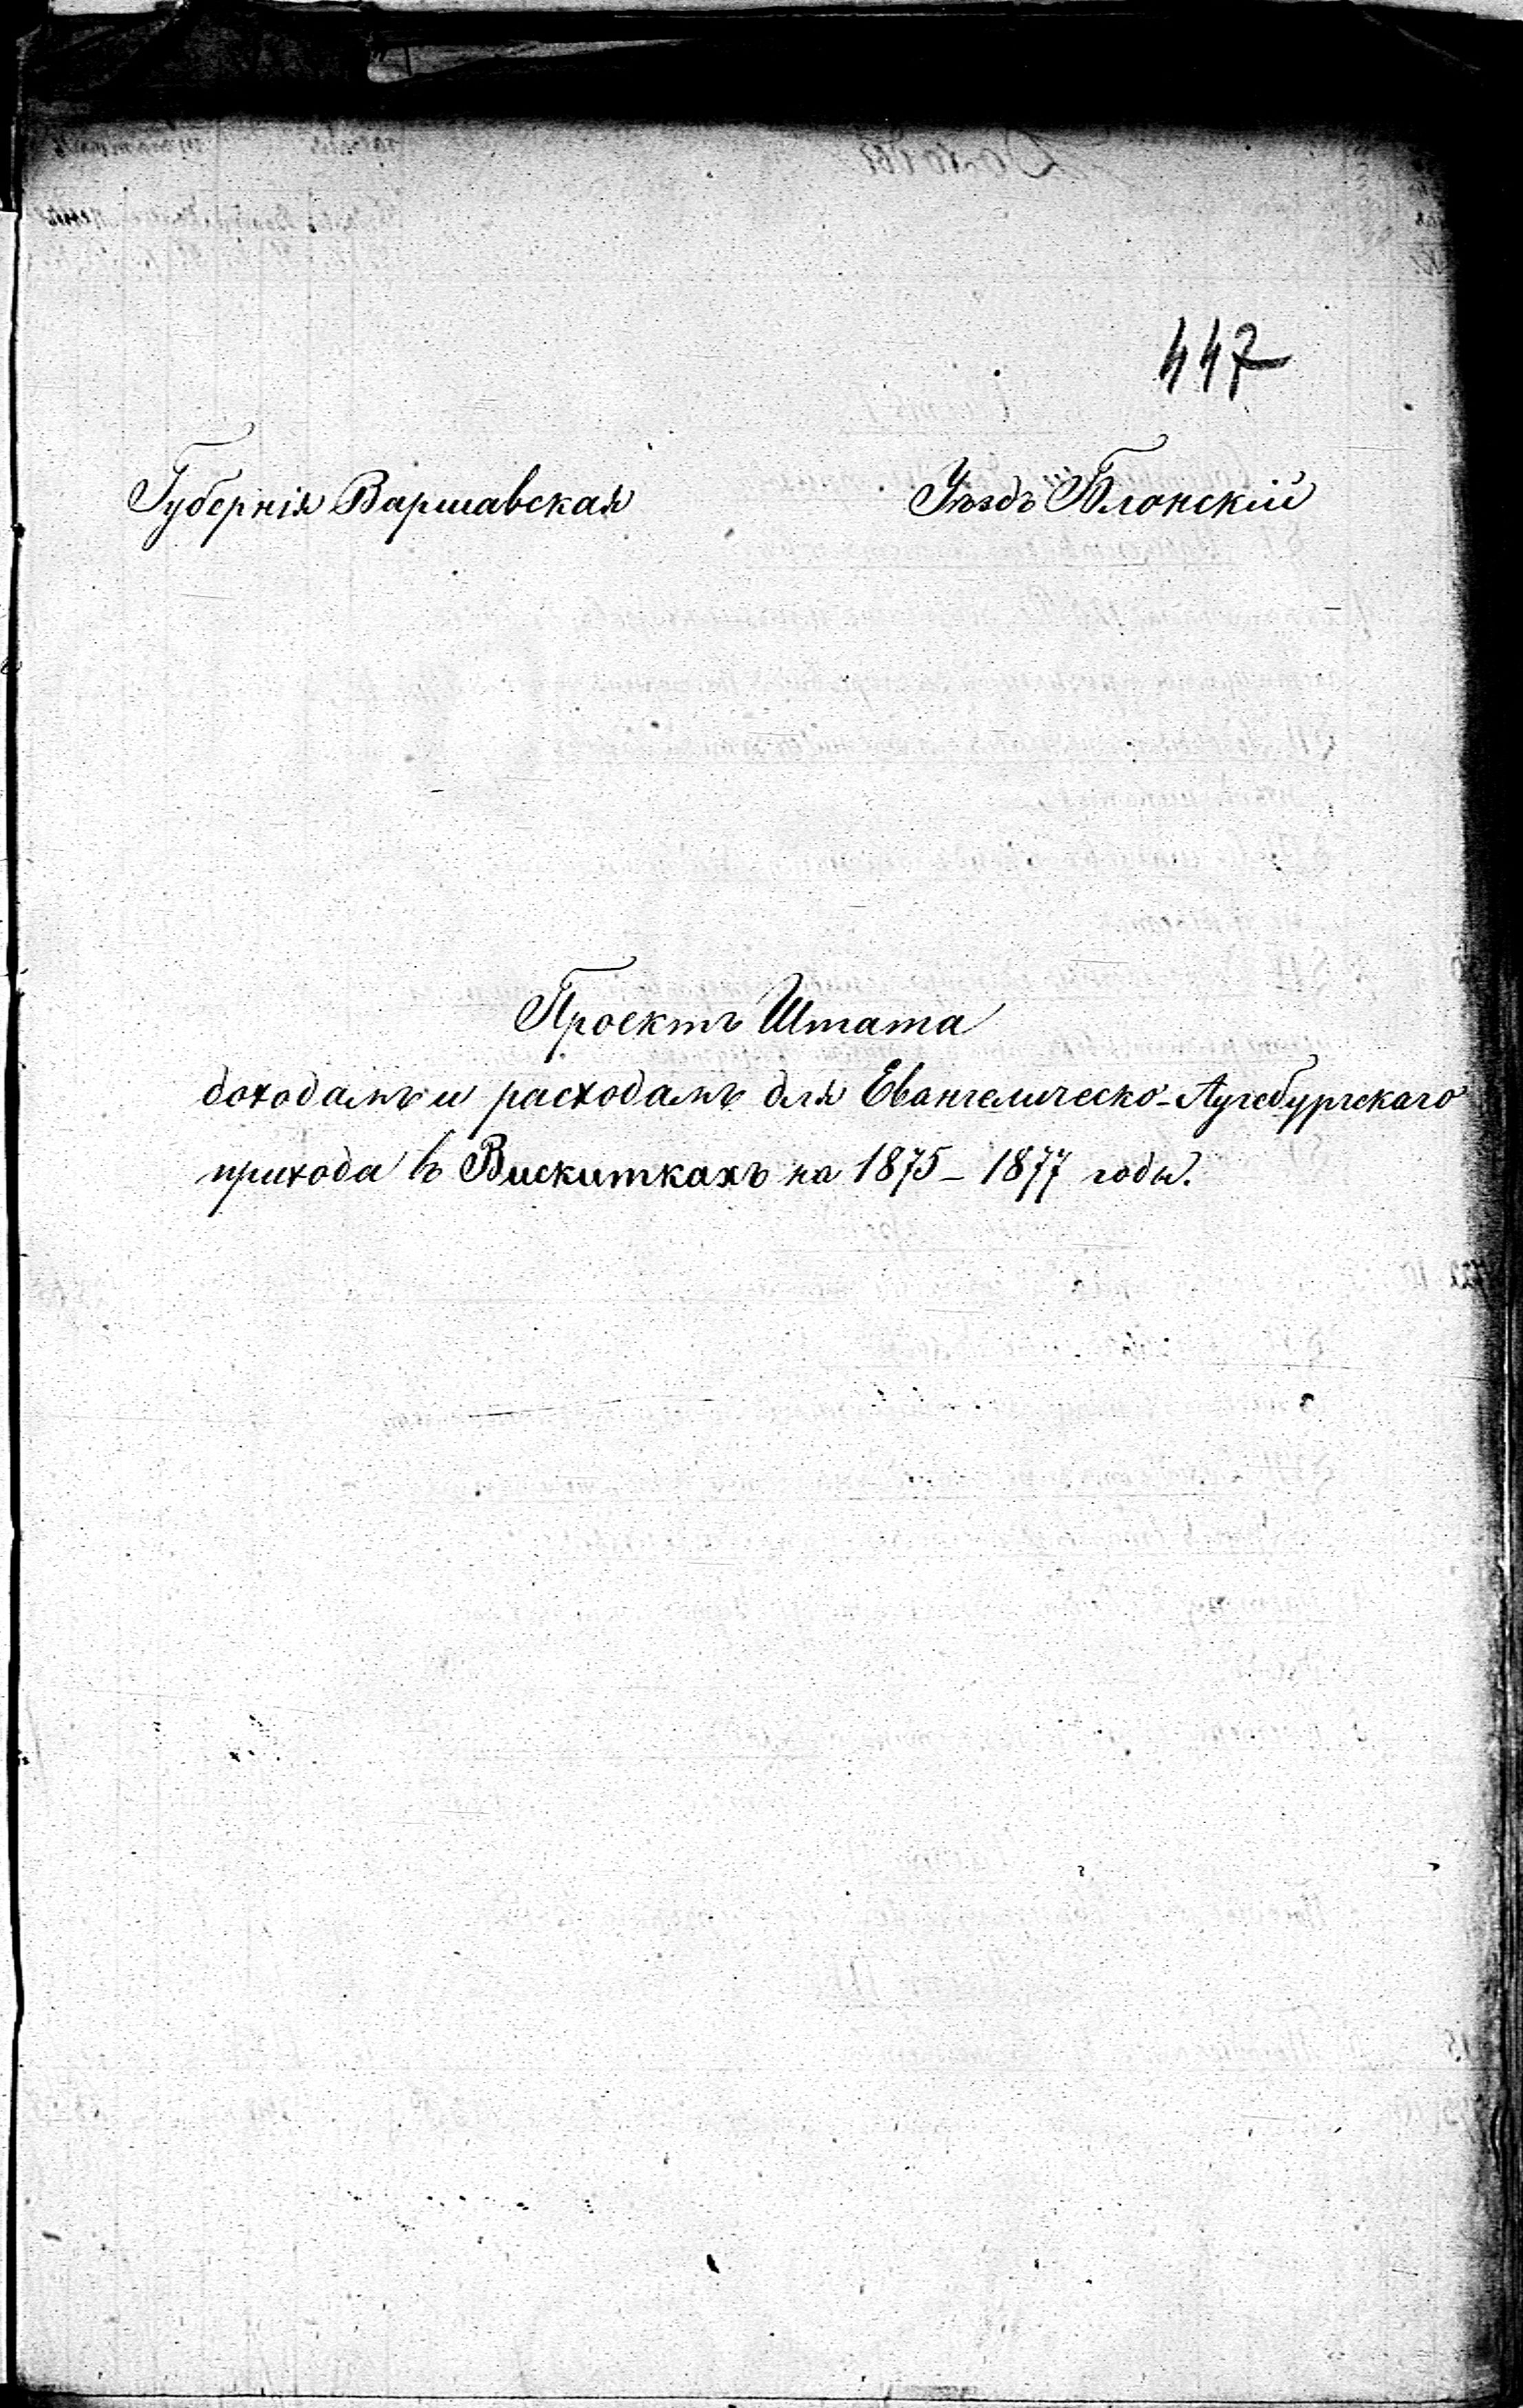 447
Губернія Варшавская Уѣздъ Блонскій
Проектъ Штата
доходамъ и расходамъ для Евангелическо-Аугсбургскаго
прихода въ Вискиткахъ на 1875-1877 годы.